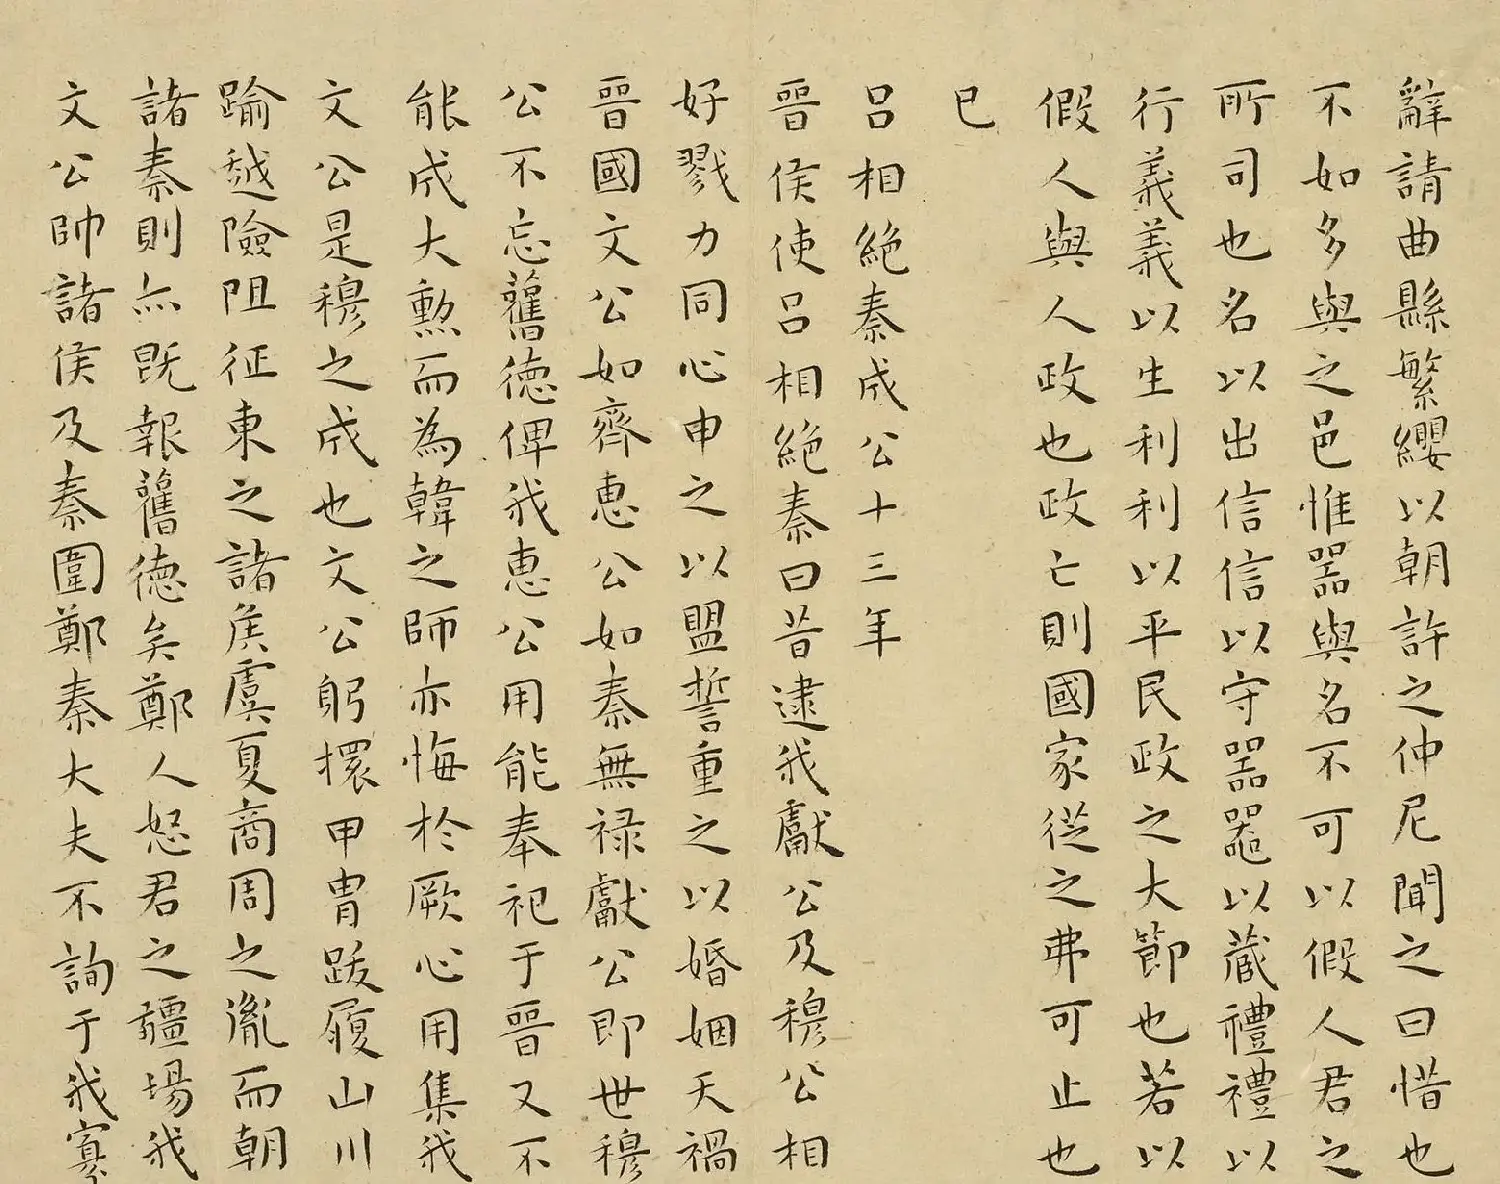 辭請曲縣繁纓以朝許之仲尼聞之曰惜也
不如多與之邑惟器與名不可以假人君之
所司也名以出信信以守器器以藏禮禮以
行義義以生利利以平民政之大節也若以
假人與人政也政亡則國家從之弗可止也
已
呂相絕秦成公十三年
晉侯使呂相絕秦曰昔逮我獻公及穆公相
好戮力同心申之以盟誓重之以婚姻天禍
晉國文公如齊惠公如秦無祿獻公即世穆
公不忘舊德俾我惠公用能奉祀于晉又不
能成大勲而為韓之師亦悔於厥心用集我
文公是穆之成也文公躬擐甲冑跋履山川
踰越險阻征東之諸侯虞夏商周之胤而朝
諸秦則亦既報舊德矣鄭人怒君之疆場我
文公帥諸侯及秦圍鄭秦大夫不詢于我寡